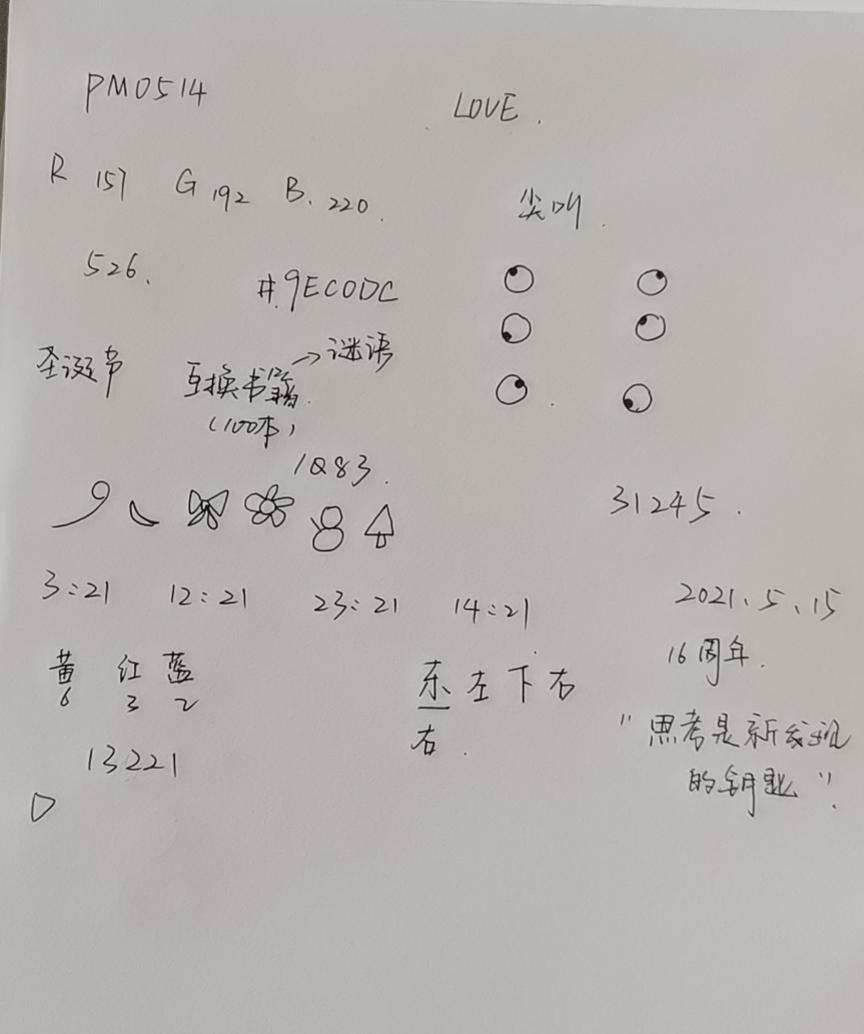 PM0514
LOVE.
R 157 G 192 B. 220.
尖叫.
526.
#.9ECODC
圣诞节
互换书籍.
→谜语
(100本)
1Q83.
31245.
3:21 12:21 23:21 14:21
2021.5.15
16周年.
黄 红 蓝
6 3 2
东左下右
右.
13221
"思考是新发现
的钥匙".